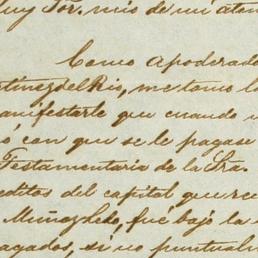 Muy Sor. mio de mi aten
Como apoderado
rtinez del Rio, me tomo la
manifestarle que cuando
ó con que se le pagase
Testamentaria de la Sra.
editos del capital que
Muñozledo, fué bajo la
pagados, si no puntualm